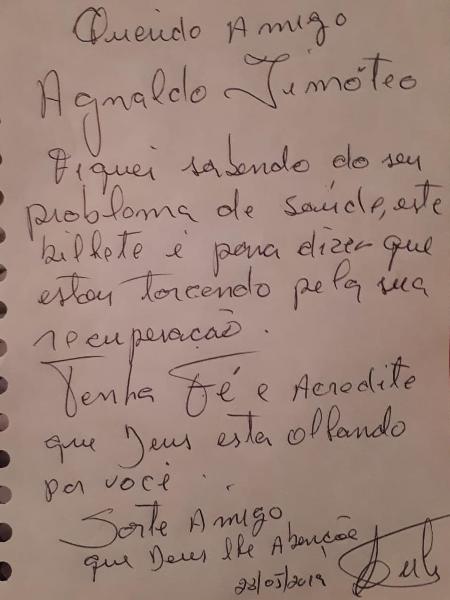 Querido Amigo
Agnaldo Timóteo
Fiquei sabendo do seu
problema de saúde, este
bilhete é para dizer que
estou torcendo pela sua
recuperação.
Tenha Fé e Acredite
que Deus esta olhando
por você..
Sorte Amigo
que Deus lhe Abençõe
23/05/2019
Lula